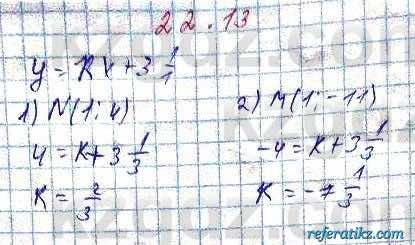 22.13
y = kx + 3 1/1
1) N(1; 4)
4 = k + 3 1/3
k = 2/3
2) M(1; -11)
-4 = k + 3 1/3
k = -7 1/3
referatikz.com